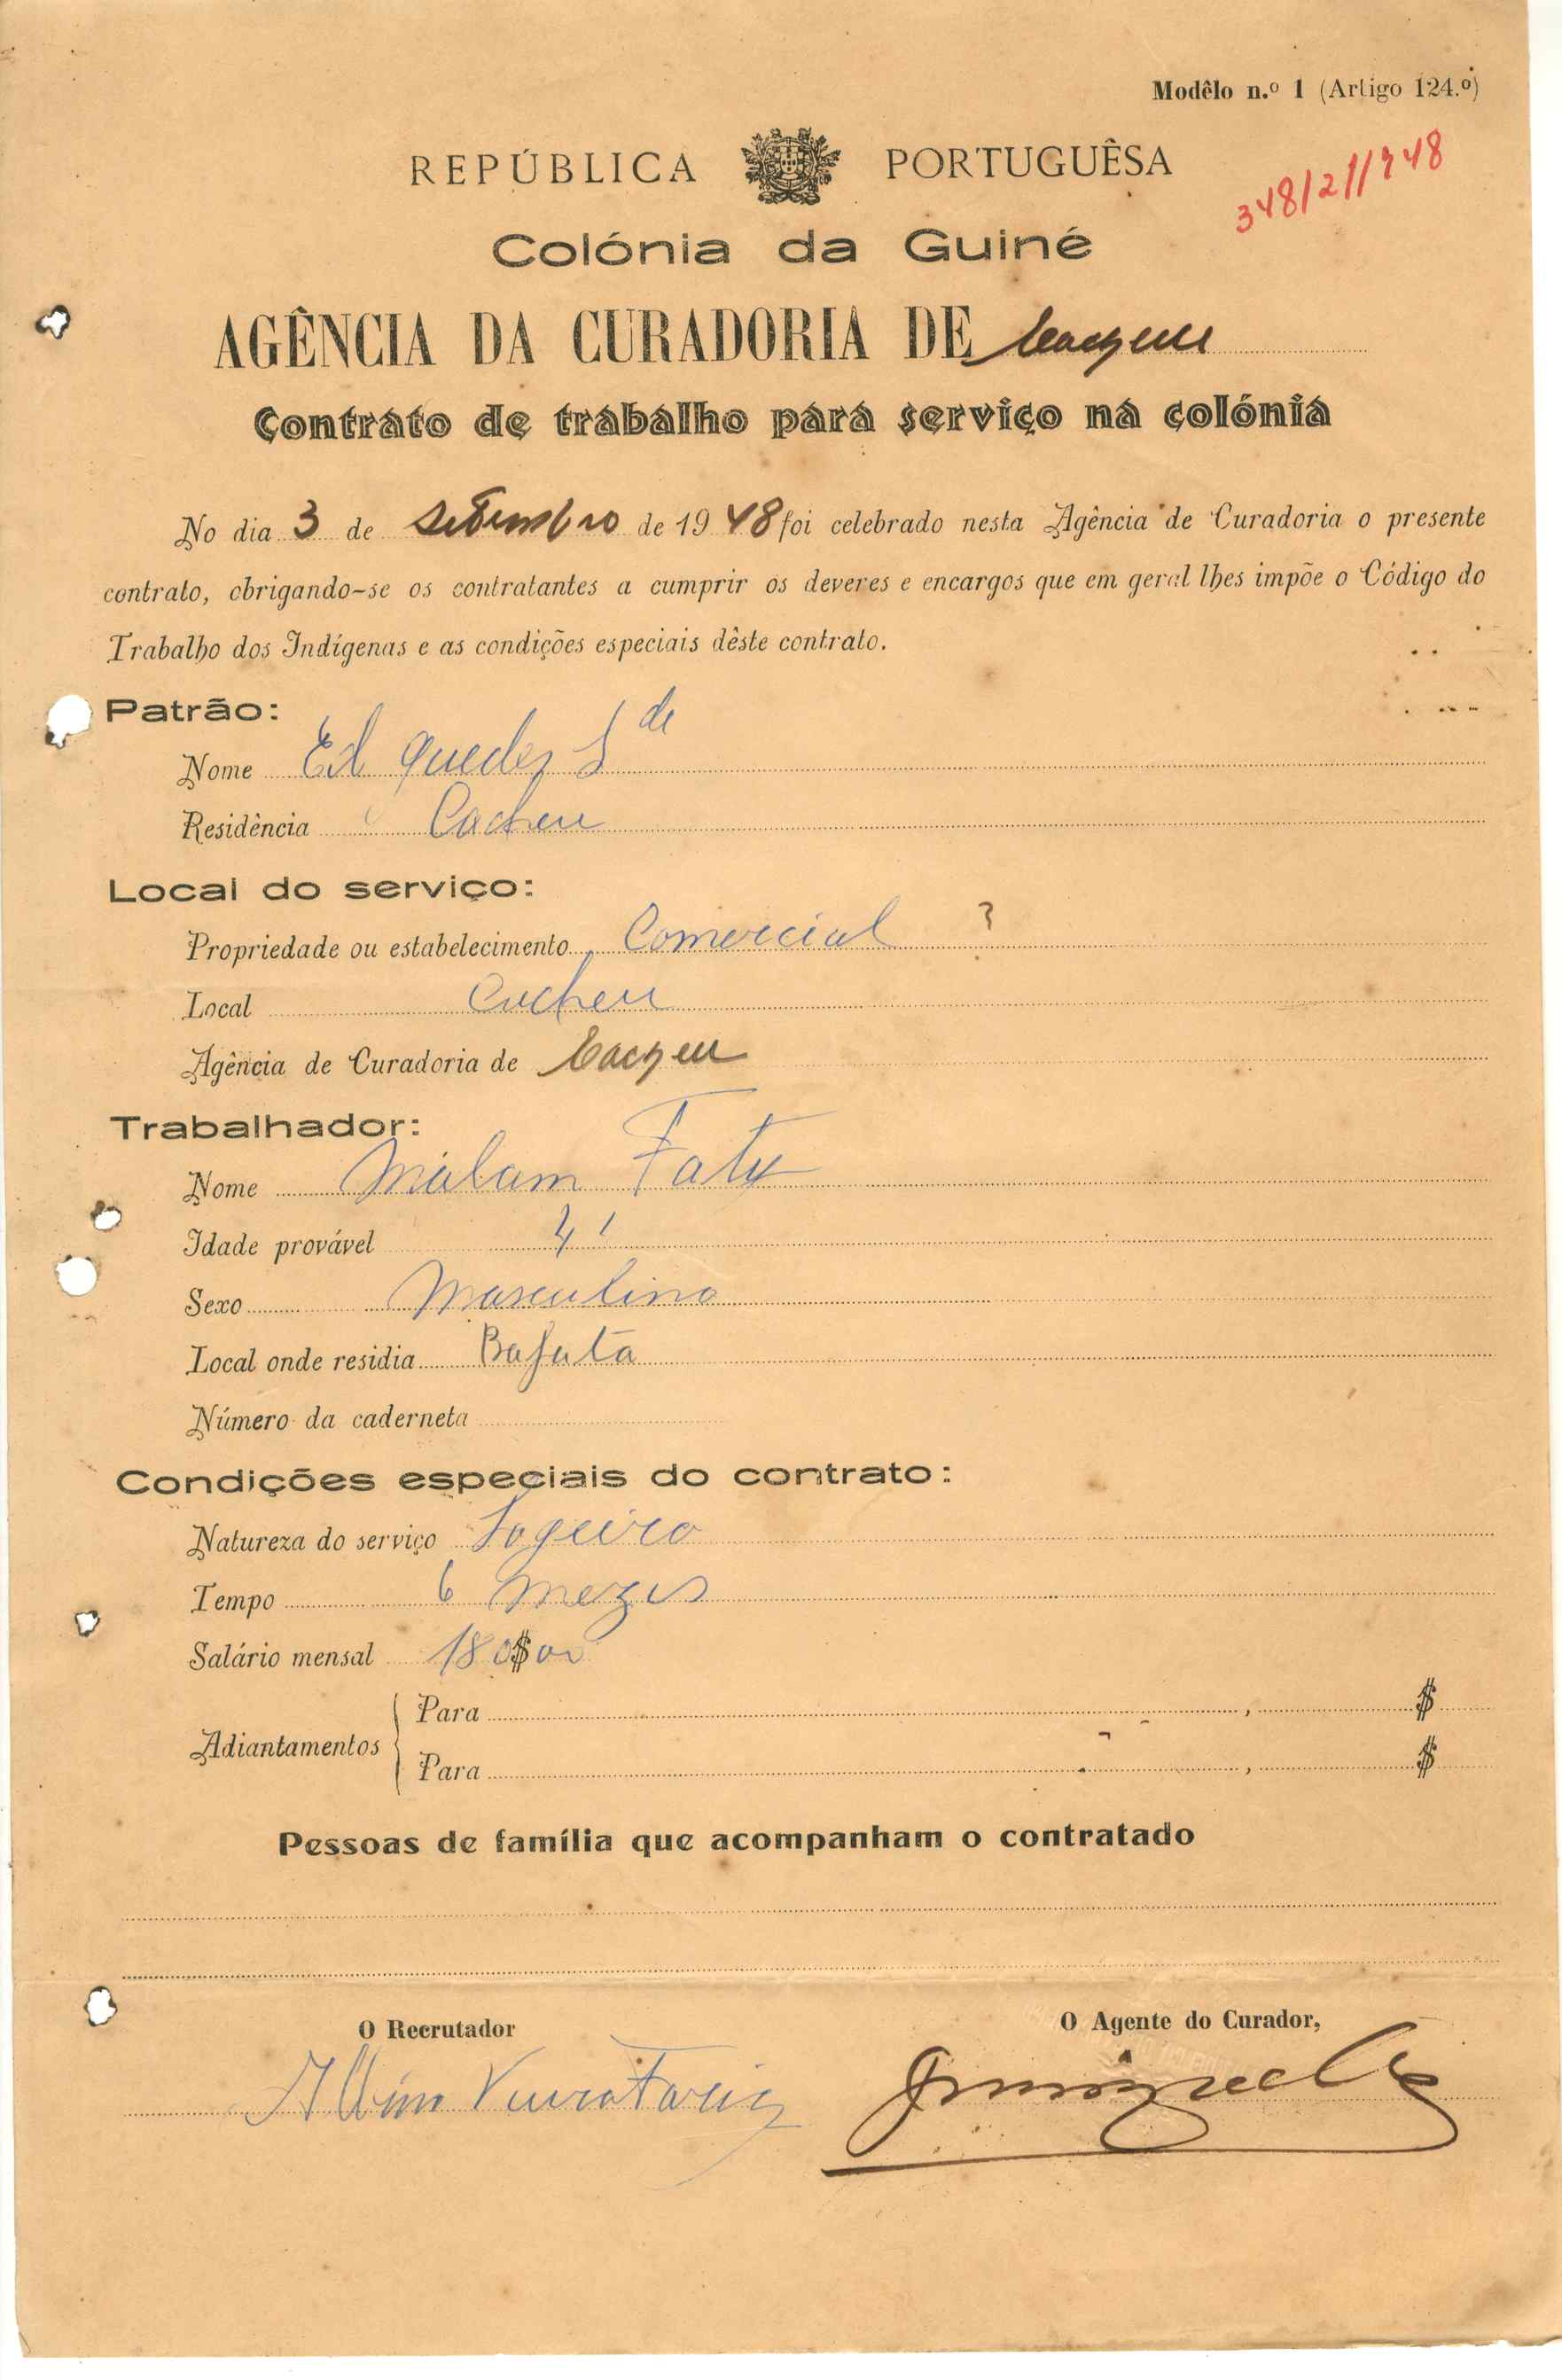 Modêlo n.º 1 (Artigo 124.º)
REPÚBLICA PORTUGUÊSA
348/2//948
Colónia da Guiné
AGÊNCIA DA CURADORIA DE Cacheu
Contrato de trabalho para serviço na colónia
No dia 3 de Setembro de 1948 foi celebrado nesta Agência de Curadoria o presente
contrato, obrigando-se os contratantes a cumprir os deveres e encargos que em geral lhes impõe o Código do
Trabalho dos Indígenas e as condições especiais dêste contrato.
Patrão:
Nome Ed Guedes Lda
Residência Cacheu
Local do serviço:
Propriedade ou estabelecimento Comercial ?
Local Cacheu
Agência de Curadoria de Cacheu
Trabalhador:
Nome Malam Faty
Idade provável
Sexo Masculino
Local onde residia Bafatá
Número da caderneta
Condições especiais do contrato:
Natureza do serviço Fogueiro
Tempo 6 mezes
Salário mensal 180$00
Adiantamentos
Para , $
Para , $
Pessoas de família que acompanham o contratado
O Recrutador
O Agente do Curador,